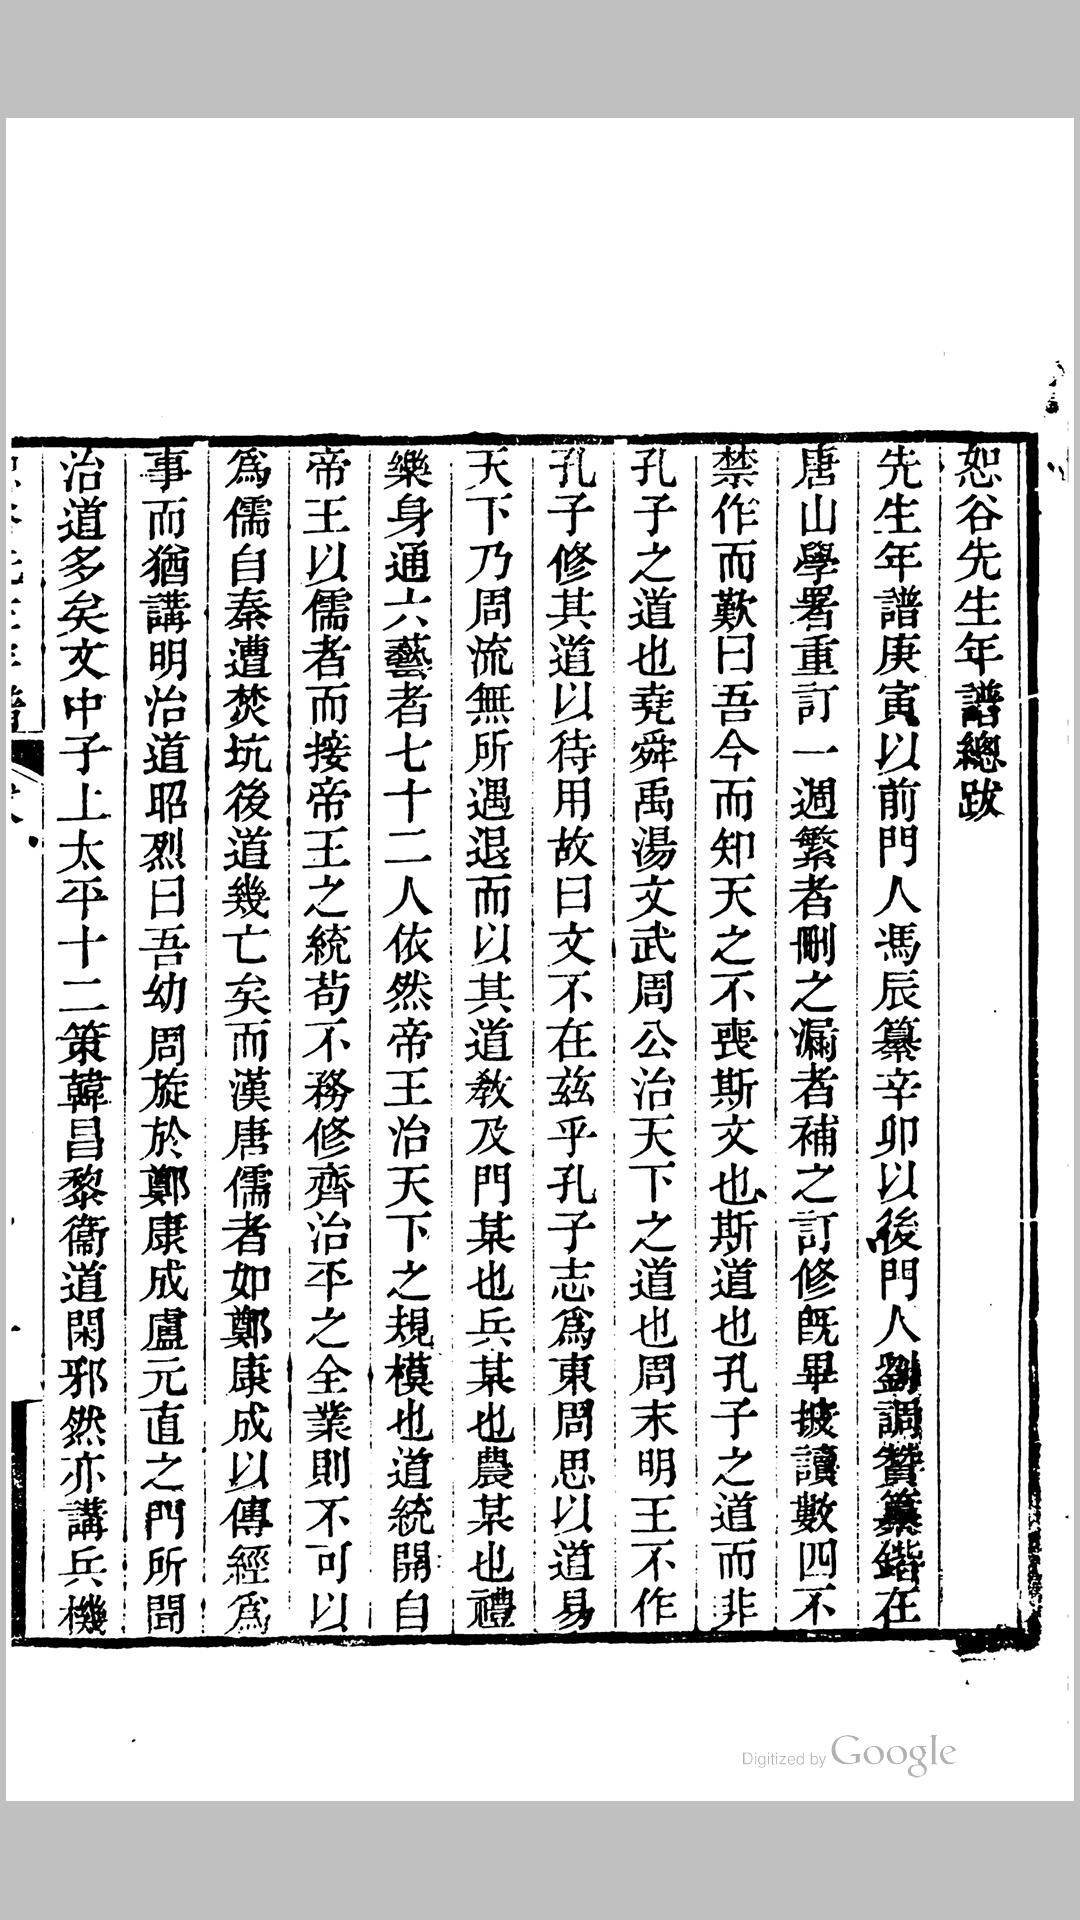 恕谷先生年譜總跋
先生年譜庚寅以前門人馮辰纂辛卯以後門人劉調贊纂鍇在
唐山學署重訂一週繁者刪之漏者補之訂修既畢披讀數四不
禁作而歎曰吾今而知天之不喪斯文也斯道也孔子之道而非
孔子之道也堯舜禹湯文武周公治天下之道也周末明王不作
孔子修其道以待用故曰文不在茲乎孔子志爲東周思以道易
天下乃周流無所遇退而以其道教及門某也兵某也農某也禮
樂身通六藝者七十二人依然帝王治天下之規模也道統開自
帝王以儒者而接帝王之統苟不務修齊治平之全業則不可以
爲儒自秦遭焚坑後道幾亡矣而漢唐儒者如鄭康成以傳經爲
事而猶講明治道昭烈曰吾幼周旋於鄭康成盧元直之門所聞
治道多矣文中子上太平十二策韓昌黎衞道閑邪然亦講兵機
Digitized by Google